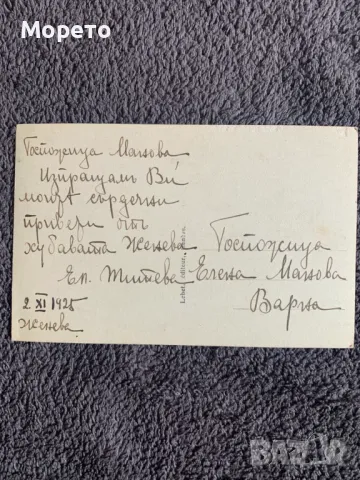 Морето
Госпожица Манова
Изпращамъ Ви
моитѣ сърдечни
привети отъ
хубавата Женева
Ел. Митева
2 XI 1925
Женева
Госпожица
Елена Манова
Варна
BAZAR